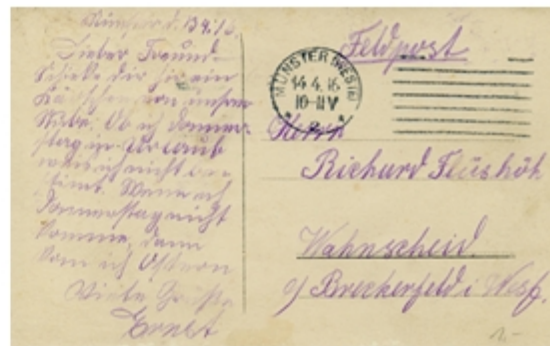 Münster d. 13.4.16.
Lieber Freund
Schicke dir hier ein
Kärtchen von unserer
Stube. Ob ich Donners-
tag in Urlaub
weis ich nicht be-
stimt. Wenn ich
Donnerstag nicht
komme, dann
kom ich Ostern
Viele Grüße
Ernst
Feldpost
MÜNSTER (WESTF)
14.4.16
10-11 V
Herrn
Richard Flüshöh
Wahnscheid
b/ Breckerfeld i Westf.